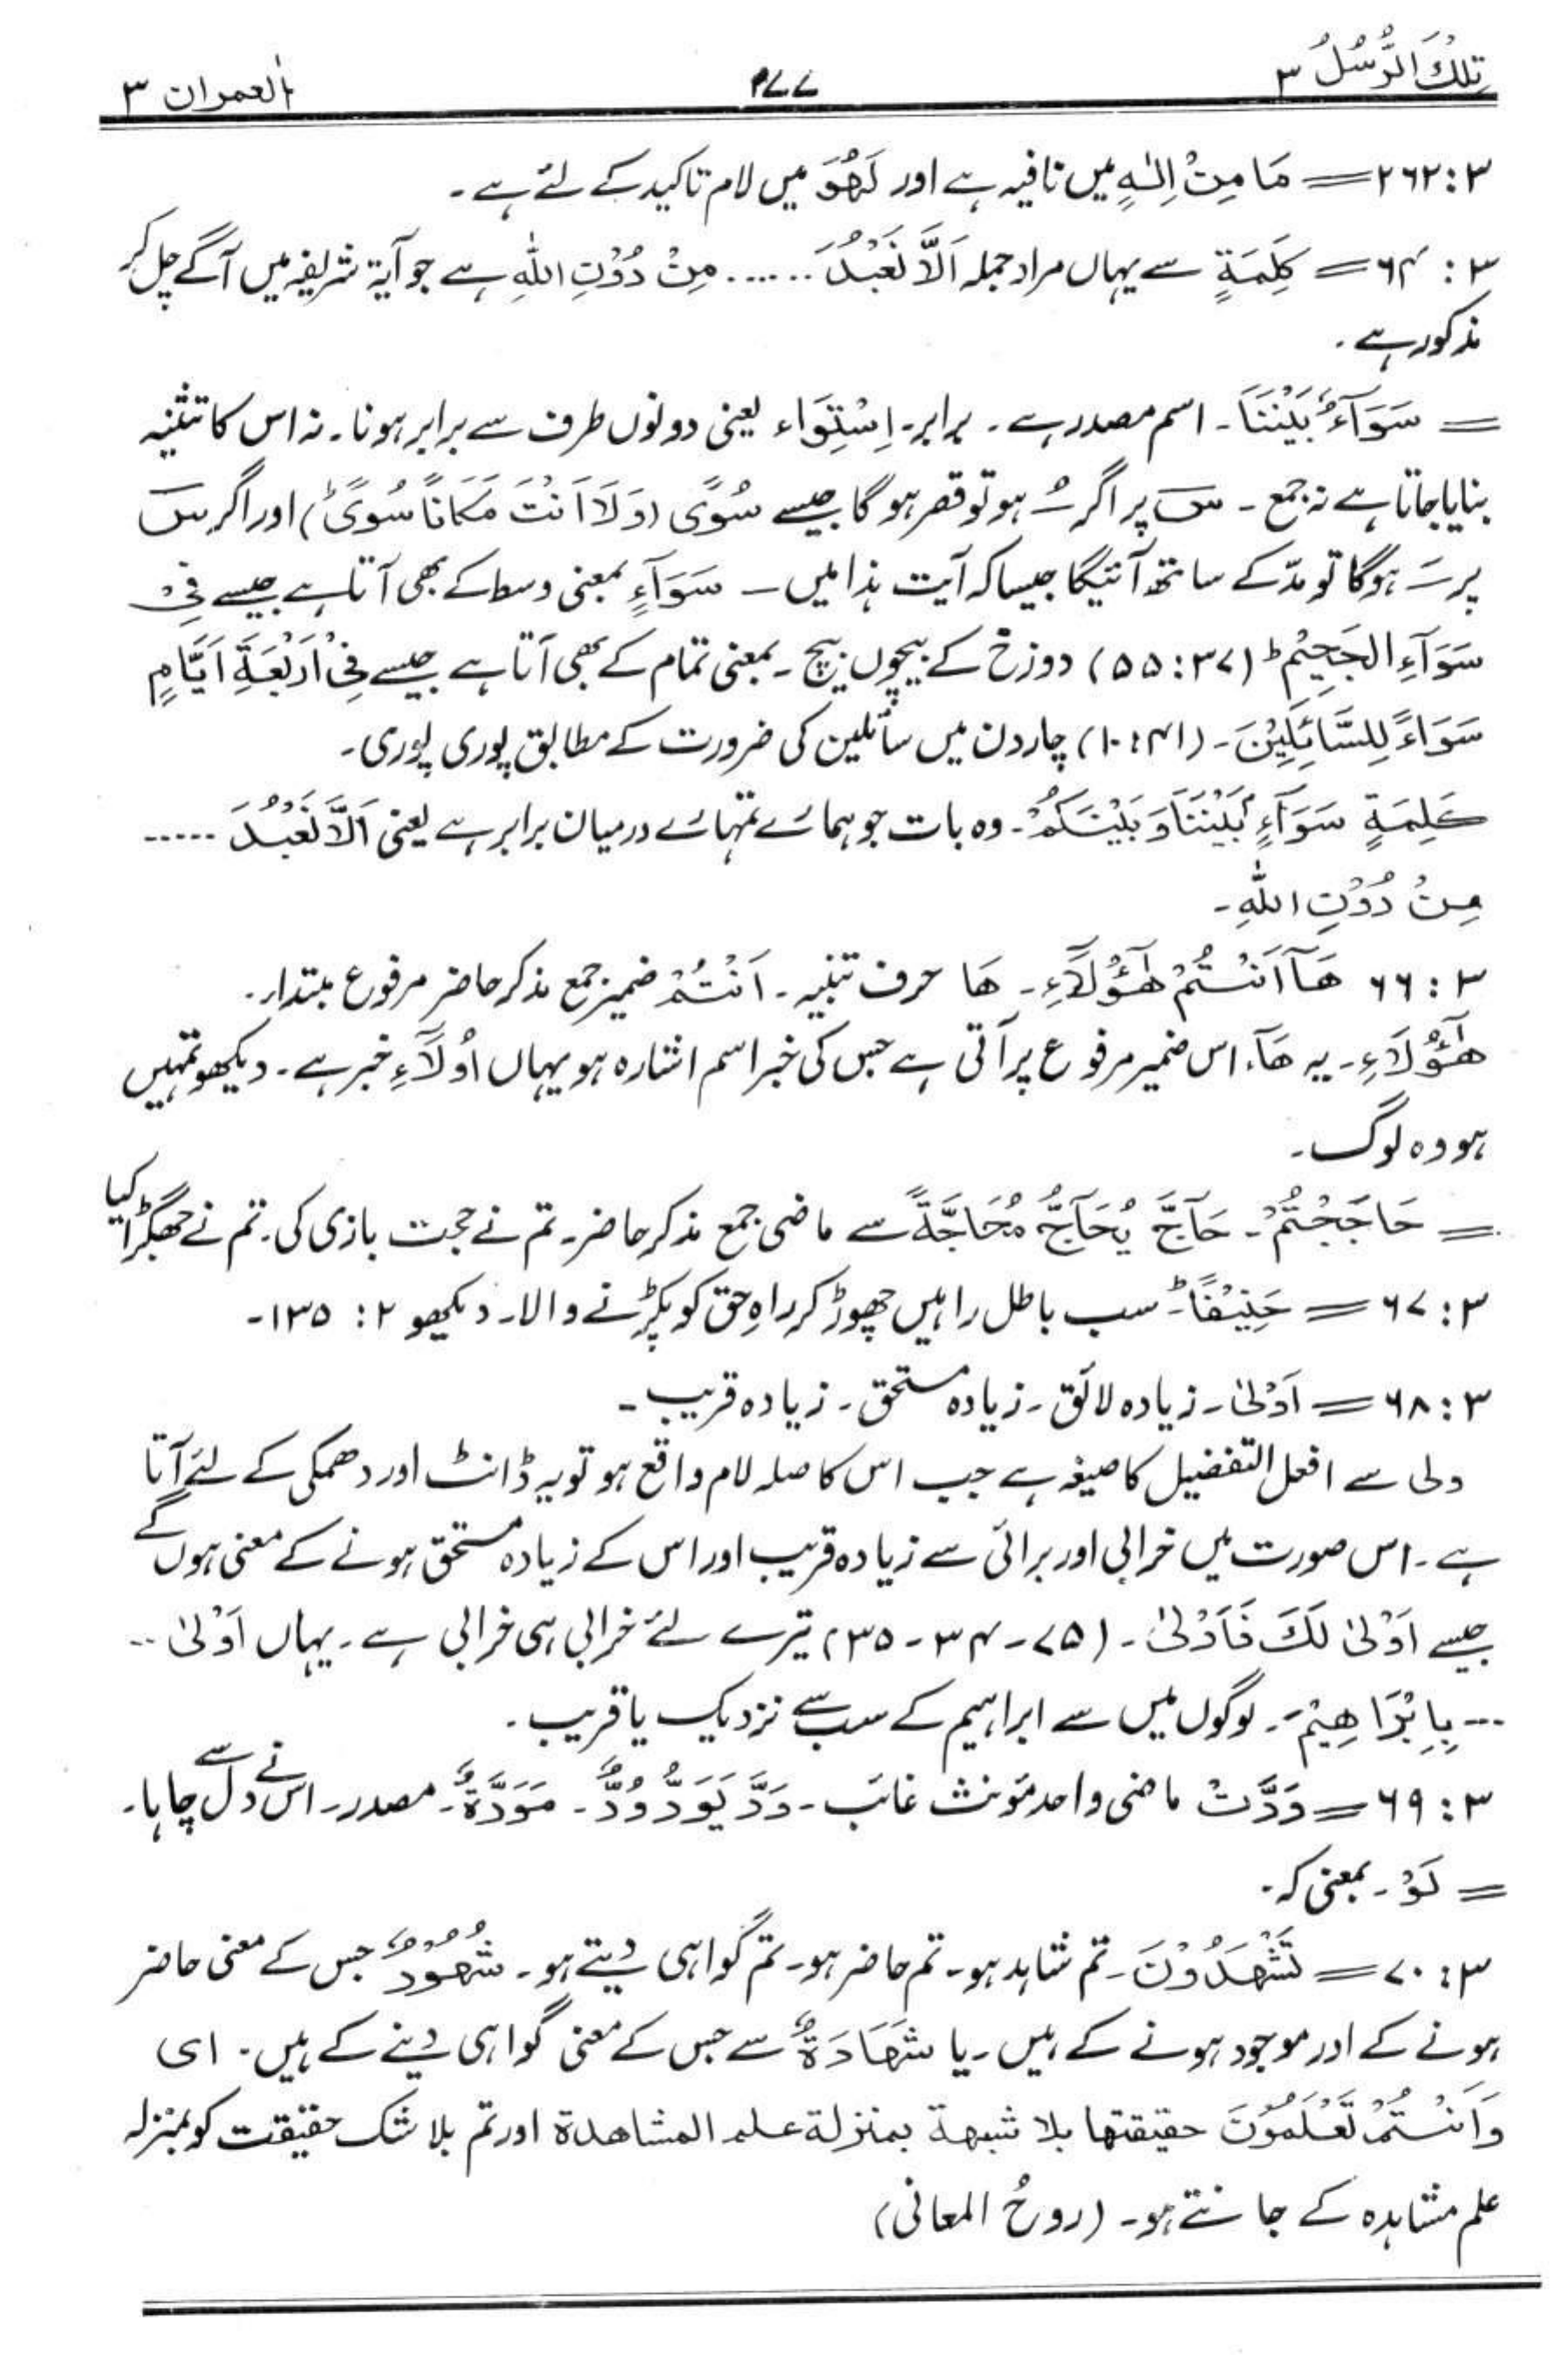 تِلْكَ الرُّسُلُ ۳ ۲۷۷ اٰل عمران ۳
۳:۶۲ = مَا مِنْ اِلٰہٍ میں نافیہ ہے اور لَھُوَ میں لام تاکید کے لئے ہے۔
۳:۶۴ = کَلِمَةٍ سے یہاں مراد جملہ اَلَّا نَعْبُدَ ...... مِنْ دُوْنِ اللّٰہِ ہے جو آیۃ شریفہ میں آگے چل کر
مذکور ہے۔
= سَوَآءٌ بَیْنَنَا۔ اسم مصدر ہے۔ برابر۔ اِسْتِوَاء یعنی دونوں طرف سے برابر ہونا۔ نہ اس کا تثنیہ
بنایا جاتا ہے نہ جمع ۔ س پر اگر ُ ہو تو قصر ہوگا جیسے سُوًی (وَلَا اَنْتَ مَکَانًا سُوًیؕ) اور اگر س
پر َ ہوگا تو مدّ کے ساتھ آئیگا جیساکہ آیت ہذا میں ۔ سَوَآءٍ بمعنی وسط کے بھی آتا ہے جیسے فِیْ
سَوَآءِ الجَحِیْمِؕ (۳۷:۵۵) دوزخ کے بیچوں بیچ۔ بمعنی تمام کے بھی آتا ہے جیسے فِیْ اَرْبَعَةِ اَیَّامٍ
سَوَاءً لِّلسَّائِلِیْنَ۔ (۴۱:۱۰) چار دن میں سائلین کی ضرورت کے مطابق پوری پوری۔
کَلِمَةٍ سَوَآءٍ بَیْنَنَا وَ بَیْنَکُمْ۔ وہ بات جو ہمارے تمہارے درمیان برابر ہے یعنی اَلَّا نَعْبُدَ -----
مِنْ دُوْنِ اللّٰہِ۔
۳:۶۶ ھَآ اَنْتُمْ ھٰٓؤُلَآءِ۔ ھَا حرف تنبیہ۔ اَنْتُمْ ضمیر جمع مذکر حاضر مرفوع مبتدا۔
ھٰٓؤُلَآءِ۔ یہ ھَآ، اس ضمیر مرفوع پر آتی ہے جس کی خبر اسم اشارہ ہو یہاں اُولَآءِ خبر ہے۔ دیکھو تمہیں
ہو وہ لوگ۔
= حَاجَجْتُمْ۔ حَآجَّ یُحَآجُّ مُحَاجَّةً سے ماضی جمع مذکر حاضر۔ تم نے حجت بازی کی۔ تم نے جھگڑا کیا
۳:۶۷ = حَنِیْفًاؕ۔ سب باطل راہیں چھوڑ کر راہِ حق کو پکڑنے والا۔ دیکھو ۲:۱۳۵۔
۳:۶۸ = اَوْلیٰ۔ زیادہ لائق۔ زیادہ مستحق۔ زیادہ قریب۔
ولی سے افعل التفضیل کا صیغہ ہے جب اس کا صلہ لام واقع ہو تو یہ ڈانٹ اور دھمکی کے لئے آتا
ہے۔ اس صورت میں خرابی اور برائی سے زیادہ قریب اور اس کے زیادہ مستحق ہونے کے معنی ہوں گے
جیسے اَوْلیٰ لَکَ فَاَوْلیٰ۔ (۷۵۔۳۴۔۳۵) تیرے لئے خرابی ہی خرابی ہے۔ یہاں اَوْلیٰ --
--- بِاِبْرَاھِیْمَ۔ لوگوں میں سے ابراہیم کے سب سے نزدیک یا قریب۔
۳:۶۹ = وَدَّتْ ماضی واحد مؤنث غائب۔ وَدَّ یَوَدُّ وُدٌّ۔ مَوَدَّةٌ۔ مصدر۔ اس نے دل سے چاہا۔
= لَوْ۔ بمعنی کہ۔
۳:۷۰ = تَشْھَدُوْنَ۔ تم شاہد ہو۔ تم حاضر ہو۔ تم گواہی دیتے ہو۔ شُھُوْدٌ جس کے معنی حاضر
ہونے کے اور موجود ہونے کے ہیں۔ یا شَھَادَةٌ سے جس کے معنی گواہی دینے کے ہیں۔ ای
وَاَنْتُمْ تَعْلَمُوْنَ حقیقتھا بلا شبھة بمنزلة علم المشاھدة اور تم بلا شک حقیقت کو بمنزلہ
علم مشاہدہ کے جانتے ہو۔ (روحُ المعانی)